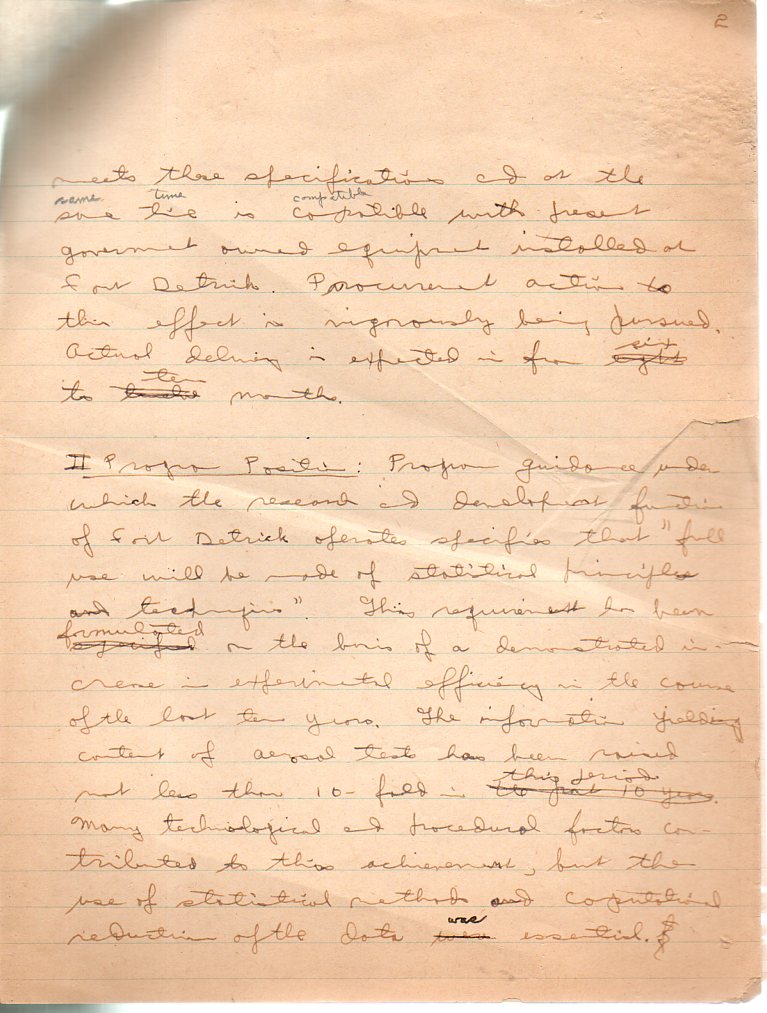 2
meets these specifications and at the
same time compatible
same time is compatible with present
government owned equipment installed at
Fort Detrick. Procurement action to
this effect is vigorously being pursued.
Actual delivery is expected in from ~~eight~~ six
to ~~twelve~~ ten months.
II Program Position: Program guidance under
which the research and development function
of Fort Detrick operates specifies that "full
use will be made of statistical principles
and techniques". This requirement has been
formulated
on the basis of a demonstrated in-
crease in experimental efficiency in the course
of the last ten years. The information yielding
content of aerosol tests has been raised
not less than 10-fold in ~~the past 10 years.~~ this period
Many technological and procedural factors con-
tributed to this achievement, but the
use of statistical methods and computational
reduction of the data ~~were~~ was essential.